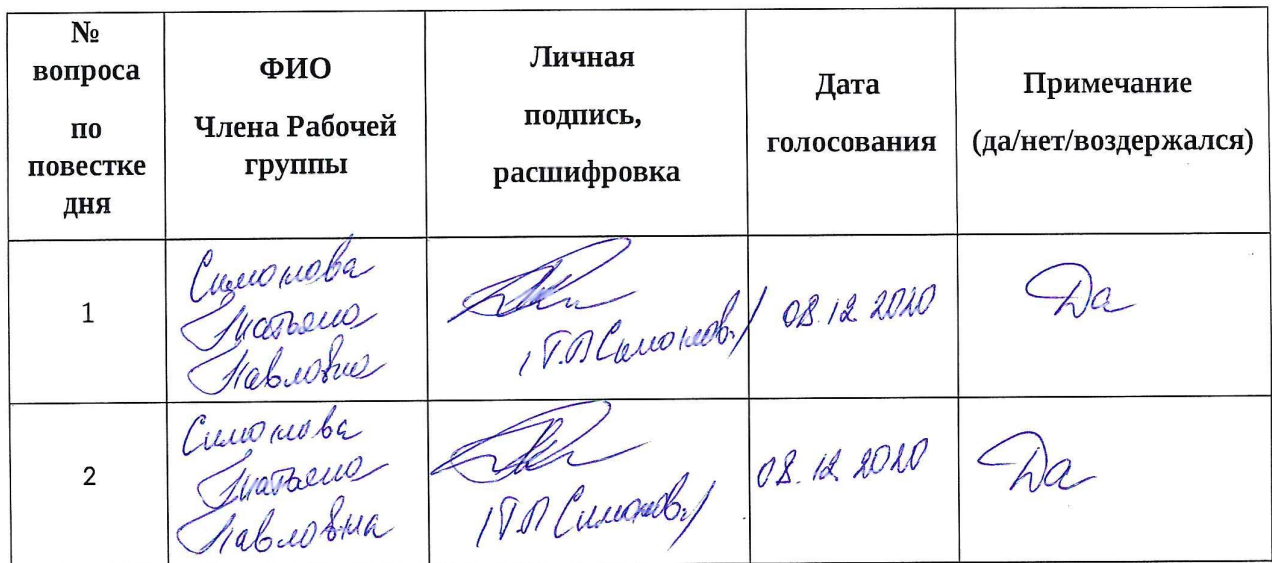 №
вопроса
по
повестке
дня
ФИО
Члена Рабочей
группы
Личная
подпись,
расшифровка
Дата
голосования
Примечание
(да/нет/воздержался)
1
Симонова
Татьяна
Павловна
/Т.П Симонов./
08.12 2020
Да
2
Симонова
Татьяна
Павловна
/Т.П Симонов./
08.12.2020
Да